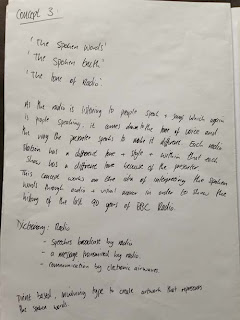 Concept 3:
'The Spoken Words'
'The Spoken truth'
'The tone of Radio'
As the radio is listening to people speak + songs which again
is people speaking, it comes down to the tone of voice and
the way the presenter speaks to make it different. Each radio
Station has a different tone + style + within that each
Show has a different tone because of the presenter.
This concept works on the idea of interpreting the spoken
words through audio + visual in order to show the
history of the last 90 years of BBC Radio.
Dictionary: Radio
- Speeches broadcast by radio
- a message transmitted by radio
- communication by electronic airwaves
based, involving type to create artwork that represents
the spoken words.